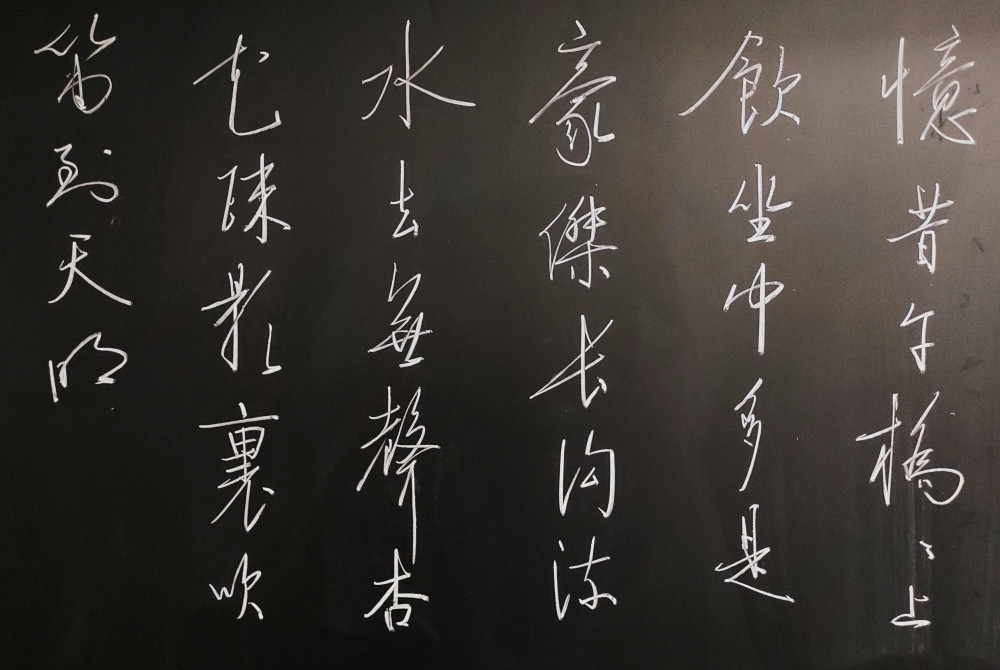 憶昔午橋〻上
飲坐中多是
豪傑长沟流
水去無聲杏
花疎影裏吹
笛到天明